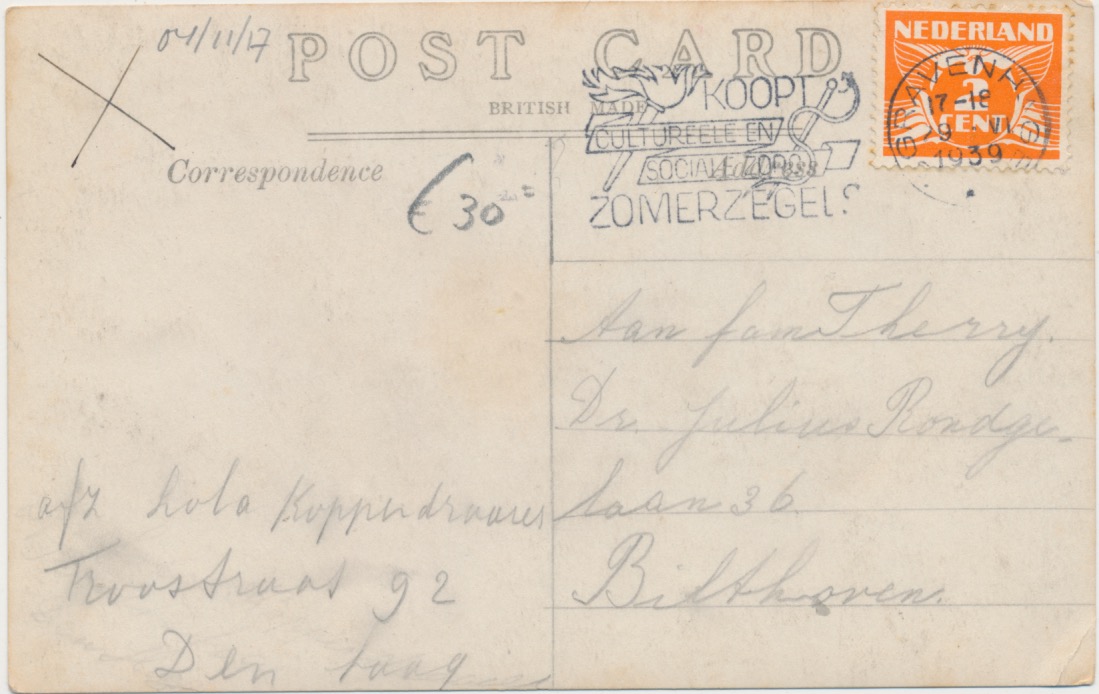 04/11/17
POST CARD
BRITISH MADE
Correspondence
Address
€ 30=
KOOPT
CULTUREELE EN
SOCIALE ZORG
ZOMERZEGELS
NEDERLAND
2
CENT
GRAVENHAGE
17-18
9 VI
1939
Aan fam Therry.
Dr. Julius Röntgen-
laan 36
Bilthoven.
afz Lola
Troostraat 92
Den Haag